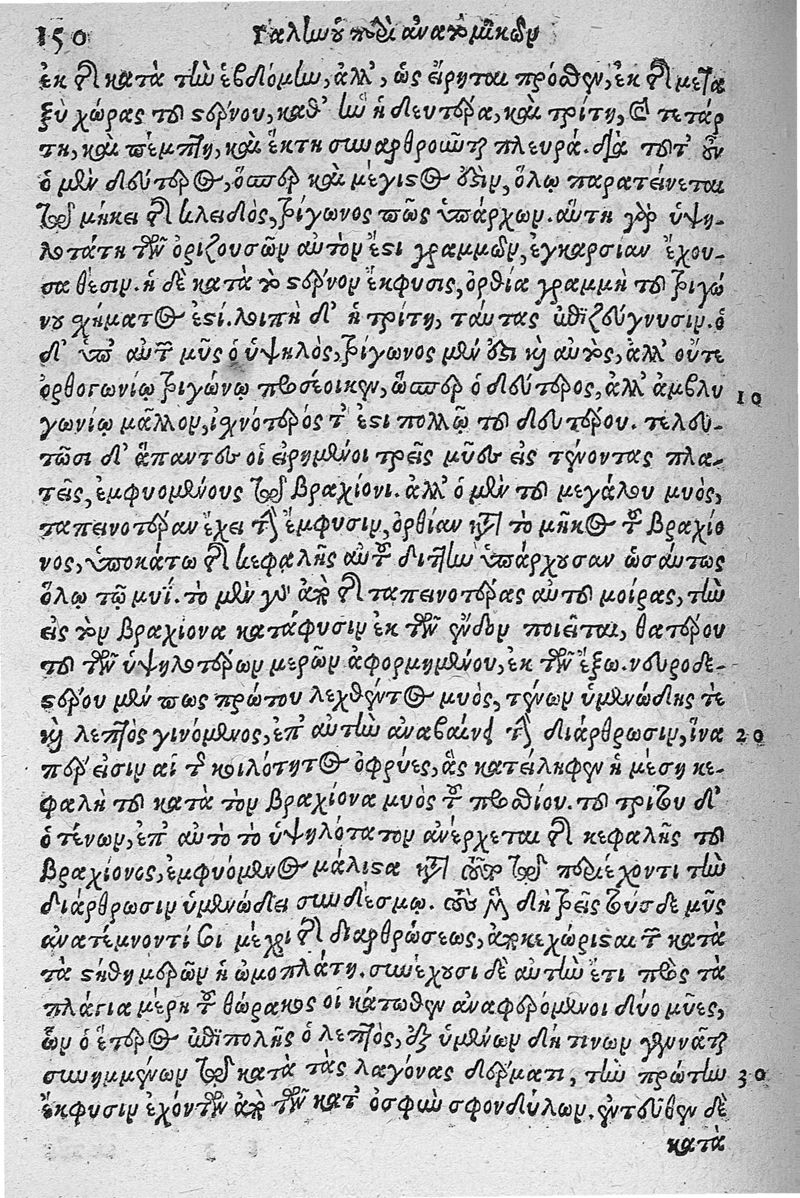 150 Γαλίωοῦ περὶ ἀνατομικῶν
ἐκ τ κατὰ τὴν ἑβδόμην, ἀλλ', ὡς εἴρηται πρόσθεν, ἐκ τ μετα
ξὺ χώρας τοῦ στέρνου, καθ' ἣν ἡ δευτέρα, καὶ τρίτη, καὶ τετάρ
τη, καὶ πέμπτη, καὶ ἕκτη συναρθροῦται πλευρά. διὰ τοῦτ' οὖν
ὁ μὲν δεύτερος, ὅσπερ καὶ μέγιστος ἐστιν, ὅλῳ παρατείνεται
τῷ μήκει τ κλειδὸς, τρίγωνος πως ὑπάρχων. αὕτη γὰρ ὑψη-
λοτάτη τῶν ὁριζουσῶν αὐτὸν ἐστι γραμμῶν, ἐγκαρσίαν ἔχου-
σα θέσιν. ἡ δὲ κατὰ τὸ στέρνον ἔκφυσις, ὀρθία γραμμὴ τοῦ τριγώ
νου σχήματος ἐστί. λοιπὴ δ' ἡ τρίτη, ταύτας ἐπιζεύγνυσιν. ὁ
δ' ὑπ' αὐτῷ μῦς ὁ ὑψηλὸς, τρίγωνος μέν ἐστι καὶ αὐτὸς, ἀλλ' οὔτε
ὀρθογωνίῳ τριγώνῳ προσέοικεν, ὥσπερ ὁ δεύτερος, ἀλλ' ἀμβλυ 10
γωνίῳ μᾶλλον, ἰσχνότερός τ' ἐστὶ πολλῷ τοῦ δευτέρου. τελευ-
τῶσι δ' ἅπαντες οἱ εἰρημένοι τρεῖς μῦες εἰς τένοντας πλα-
τεῖς, ἐμφυομένους τῷ βραχίονι. ἀλλ' ὁ μὲν τοῦ μεγάλου μυὸς,
ταπεινοτέραν ἔχει τὴν ἔμφυσιν, ὀρθίαν κατὰ τὸ μῆκος τοῦ βραχίο
νος, ὑποκάτω τ κεφαλῆς αὐτοῦ διττὴν ὑπάρχουσαν ὡσαύτως
ὅλῳ τῷ μυΐ. τὸ μὲν γὰρ ἀπὸ τ ταπεινοτέρας αὐτοῦ μοίρας, τὴν
εἰς τὸν βραχίονα κατάφυσιν ἐκ τῶν ἔνδον ποιεῖται, θατέρου
τοῦ τῶν ὑψηλοτέρων μερῶν ἀφορμημένου, ἐκ τῶν ἔξω. νευροδε-
στέρου μέν πως πρώτου λεχθέντος μυὸς, τένων ὑμενώδης τε
καὶ λεπτὸς γινόμενος, ἐπ' αὐτὴν ἀναβαίνει τὴν διάρθρωσιν, ἵνα 20
πέρ εἰσιν αἱ τῆς κοιλότητος ὀφρύες, ἃς κατείληφεν ἡ μέση κε-
φαλὴ τοῦ κατὰ τὸν βραχίονα μυὸς τοῦ προσθίου. τοῦ τρίτου δ'
ὁ τένων, ἐπ' αὐτὸ τὸ ὑψηλότατον ἀνέρχεται τ κεφαλῆς τοῦ
βραχίονος, ἐμφυόμενος μάλιστα κατὰ σὺν τῷ περιέχοντι τὴν
διάρθρωσιν ὑμενώδει συνδέσμῳ. οὖν δὴ τρεῖς τούσδε μῦς
ἀνατέμνοντί σοι μέχρι τ διαρθρώσεως, ἀποκεχώρισται τῶν κατὰ
τὰ στήθη μερῶν ἡ ὠμοπλάτη. συνέχουσι δὲ αὐτὴν ἔτι πρὸς τὰ
πλάγια μέρη τοῦ θώρακος οἱ κάτωθεν ἀναφερόμενοι δύο μῦες,
ὧν ὁ ἕτερος ἐπιπολῆς ὁ λεπτὸς, ἐξ ὑμένων δή τινων γεννᾶται
συνημμένων τῷ κατὰ τὰς λαγόνας δέρματι, τὴν πρώτην 30
ἔκφυσιν ἐχόντων ἀπὸ τῶν κατ' ὀσφὺν σφονδύλων. ἐντεῦθεν δὲ
κατὰ